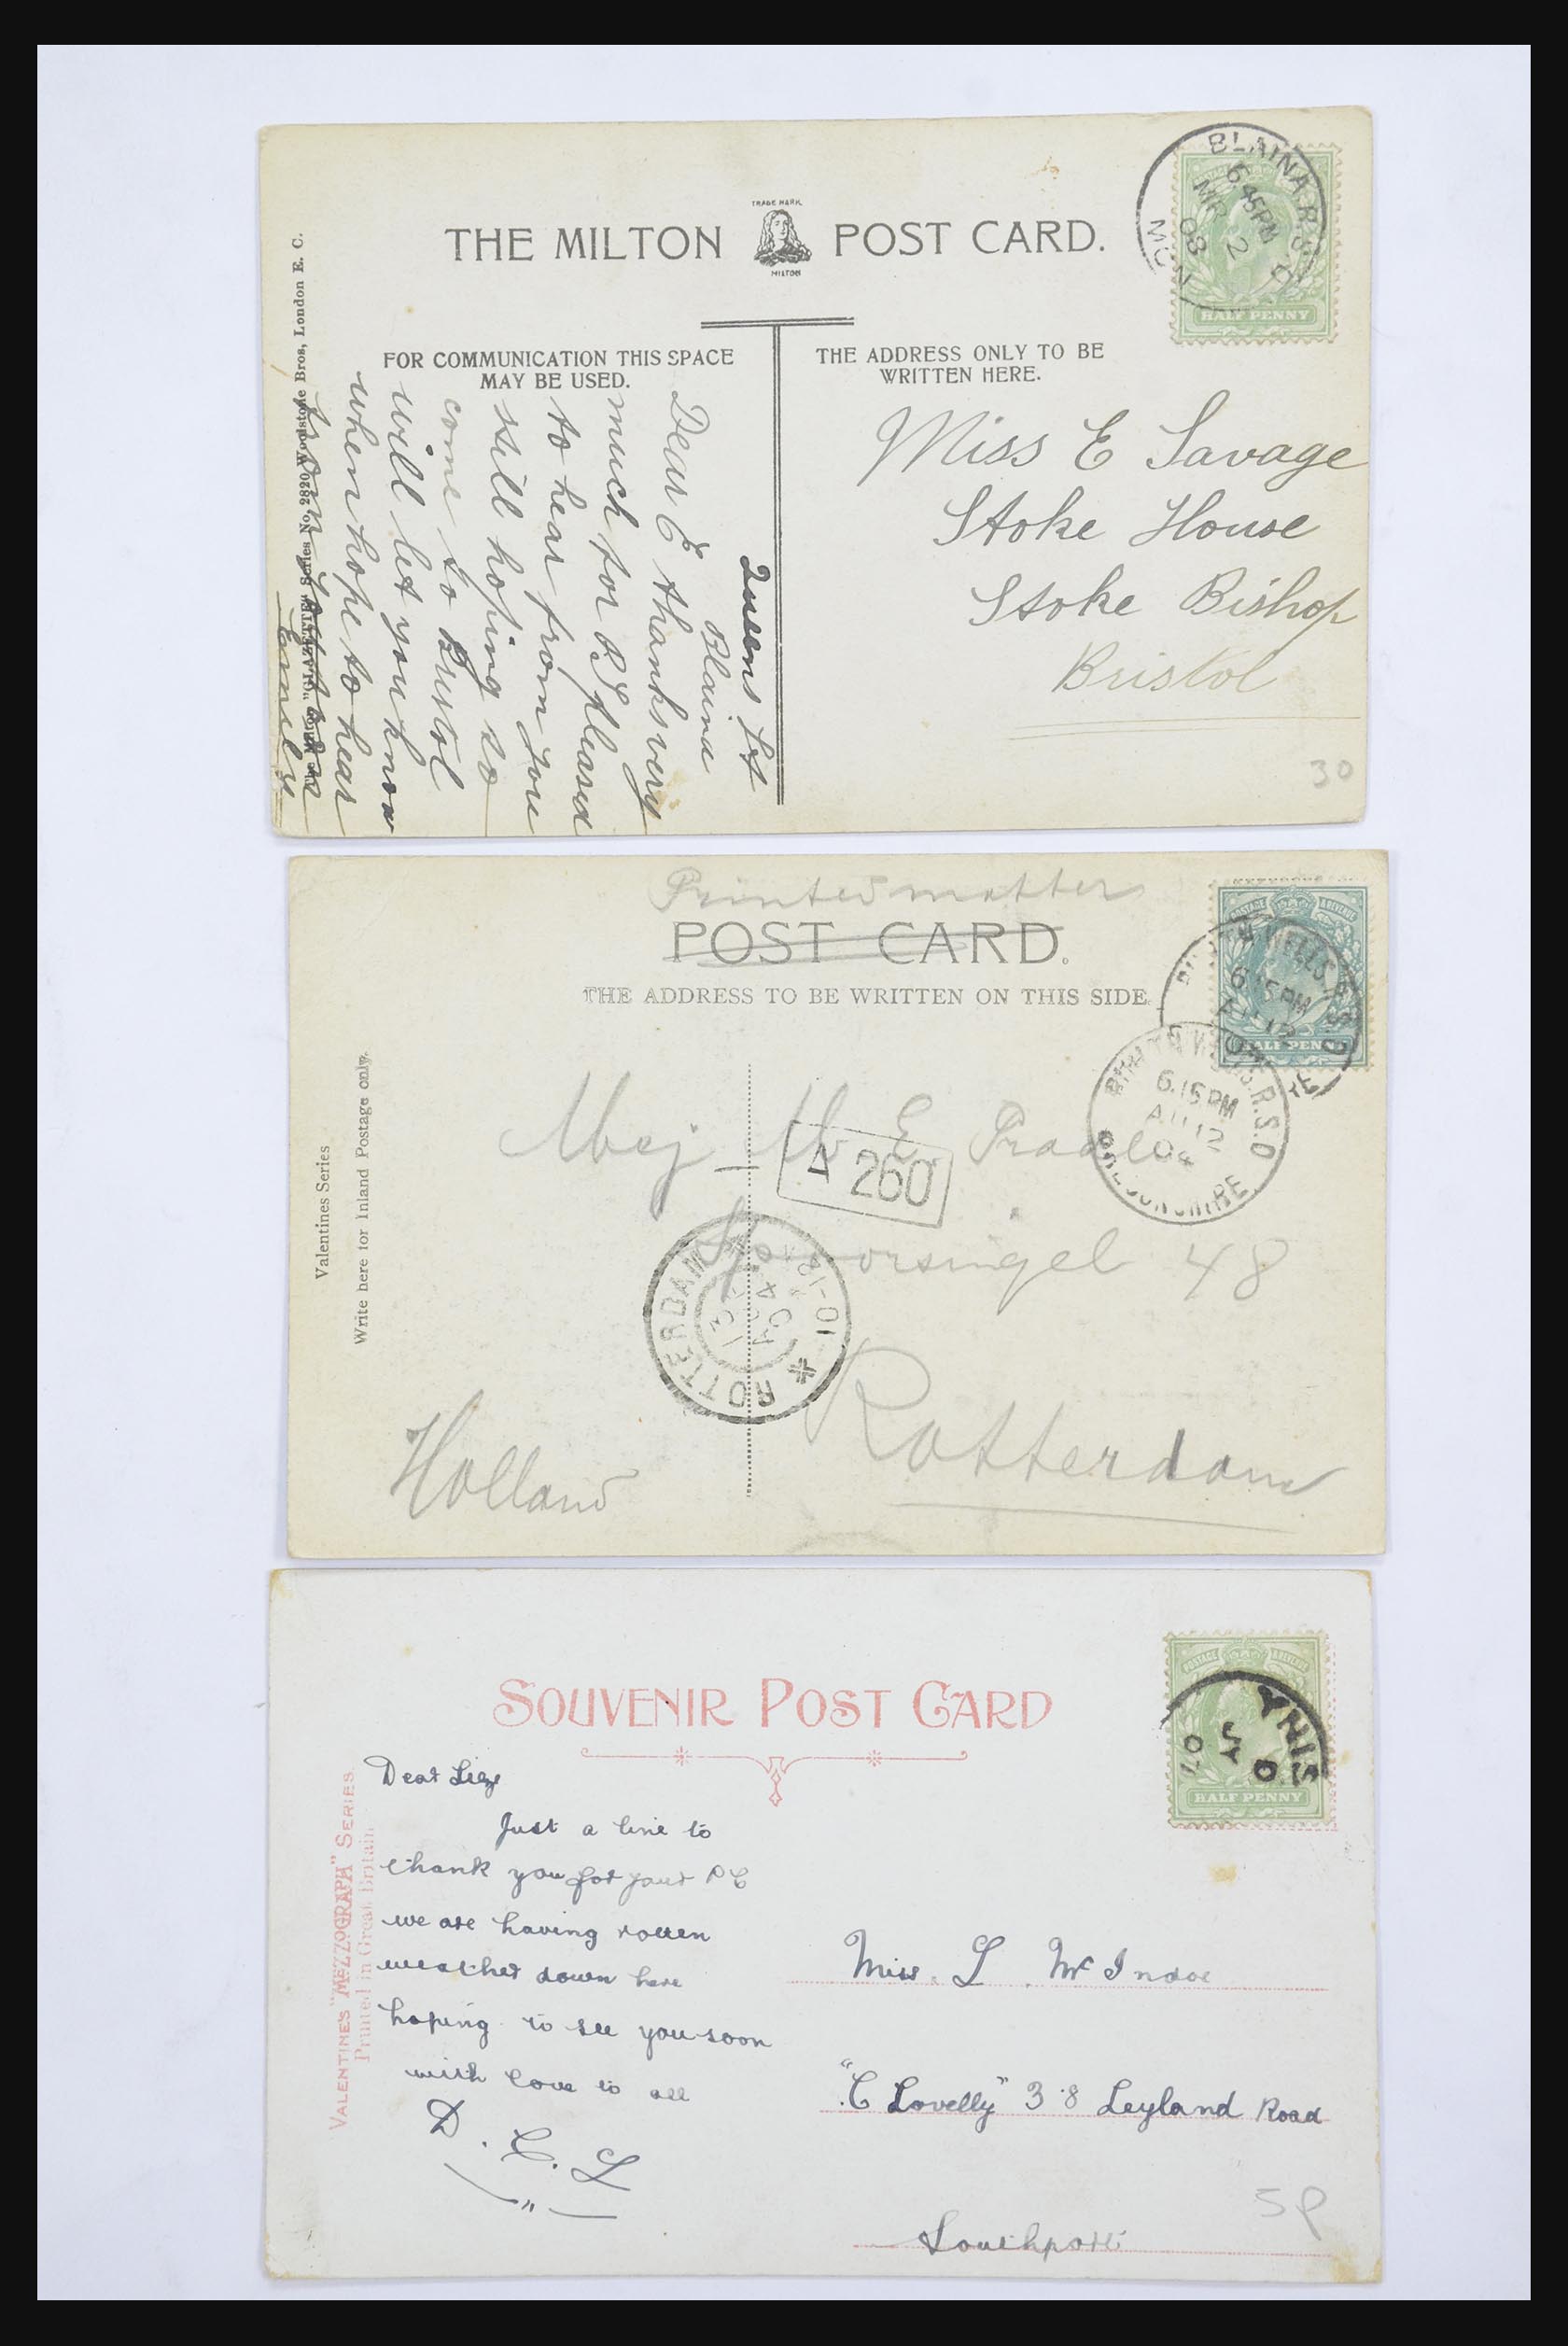 TRADE MARK
THE MILTON POST CARD.
MILTON
BLAINA R.S.O
6 45PM
MR 2
08
MON
HALF PENNY
FOR COMMUNICATION THIS SPACE
MAY BE USED.
THE ADDRESS ONLY TO BE
WRITTEN HERE.
"GLAZETTE" Series No. 2820 Woolstone Bros, London E. C.
Queens St
Blaina
Dear E thanks very
much for P.C. pleased
to hear from you
still hoping to
come to Bristol
will let you know
when hope to hear
Emily
Miss E Savage
Stoke House
Stoke Bishop
Bristol
30
Printed matter
POST CARD.
THE ADDRESS TO BE WRITTEN ON THIS SIDE.
POSTAGE & REVENUE
HALF PENNY
WELLS R.S.O
6.15PM
AU 12
BUILTH WELLS.R.S.O
6.15PM
AU 12
04
BRECONSHIRE
Valentines Series
Write here for Inland Postage only.
Mej
260
48
ROTTERDAM
Rotterdam
Holland
SOUVENIR POST CARD
POSTAGE & REVENUE
HALF PENNY
YNIS
07
VALENTINE'S "MEZZOGRAPH" SERIES.
Printed in Great Britain
Dear Lizy
Just a line to
thank you for your P C
we are having rotten
weather down here
hoping to see you soon
with love to all
D. C. L
"
Miss. L. Mc Indoe
"C Lovelly" 38 Leyland Road
Southport
5P